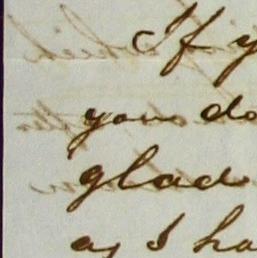 If y
you do
glad
as I ha